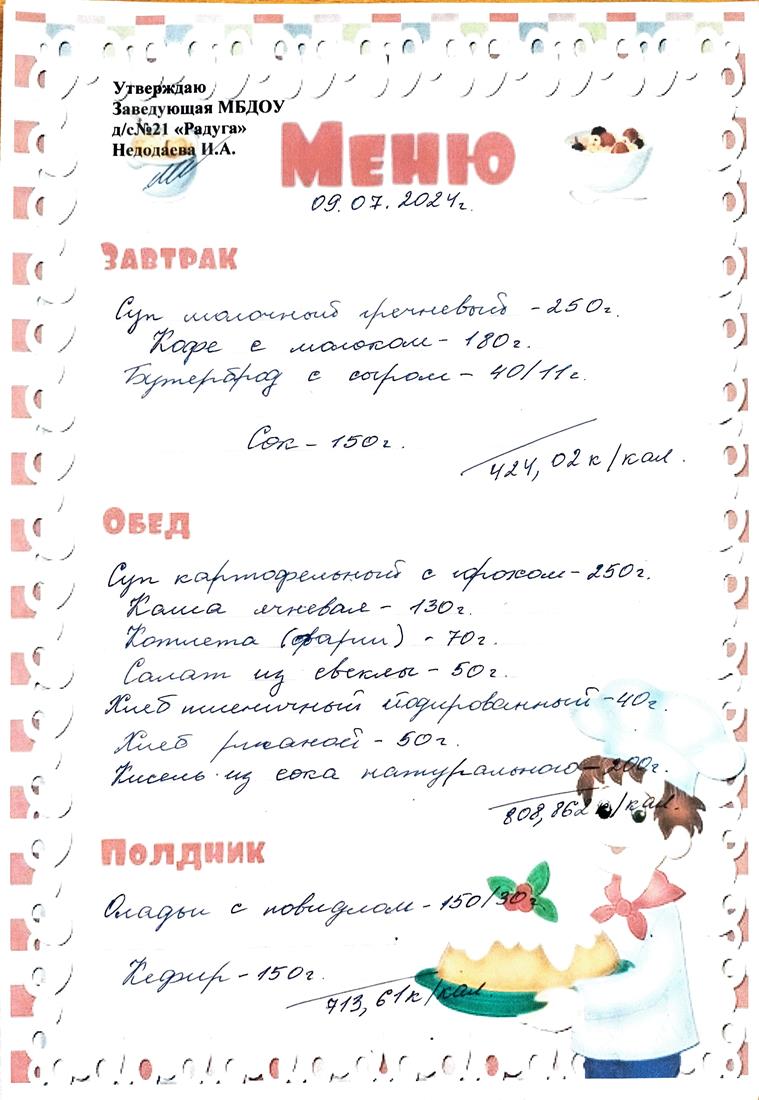 Утверждаю
Заведующая МБДОУ
д/с№21 «Радуга»
Недодаева И.А.
Меню
09.07.2024г.
Завтрак
Суп молочный гречневый - 250г.
Кофе с молоком - 180г.
Бутерброд с сыром - 40/11г.
Сок - 150г.
424,02 к/кал.
Обед
Суп картофельный с горохом - 250г.
Каша ячневая - 130г.
Котлета (фарш) - 70г.
Салат из свеклы - 50г.
Хлеб пшеничный йодированный - 40г.
Хлеб ржаной - 50г.
Кисель из сока натурального - 200г.
808,862 к/кал.
Полдник
Оладьи с повидлом - 150/30г.
Кефир - 150г.
713,61 к/кал.